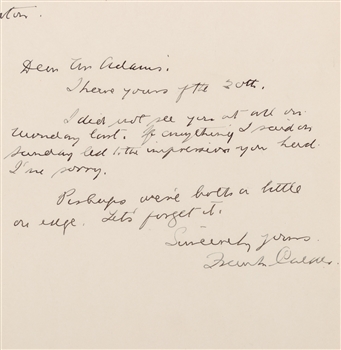 Dear Mr Adams:
I have yours of the 20th.
I did not see you at all on
Monday last. If anything I said on
Sunday led to the impression you had
I'm sorry.
Perhaps we're both a little
on edge. Let's forget it.
Sincerely yours.
Frank Calder